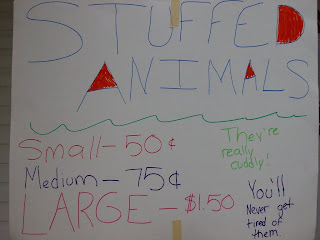 STUFFED
ANIMALS
Small - 50¢
Medium - 75¢
LARGE - $1.50
They're
really
cuddly!
You'll
Never get
tired of
them.